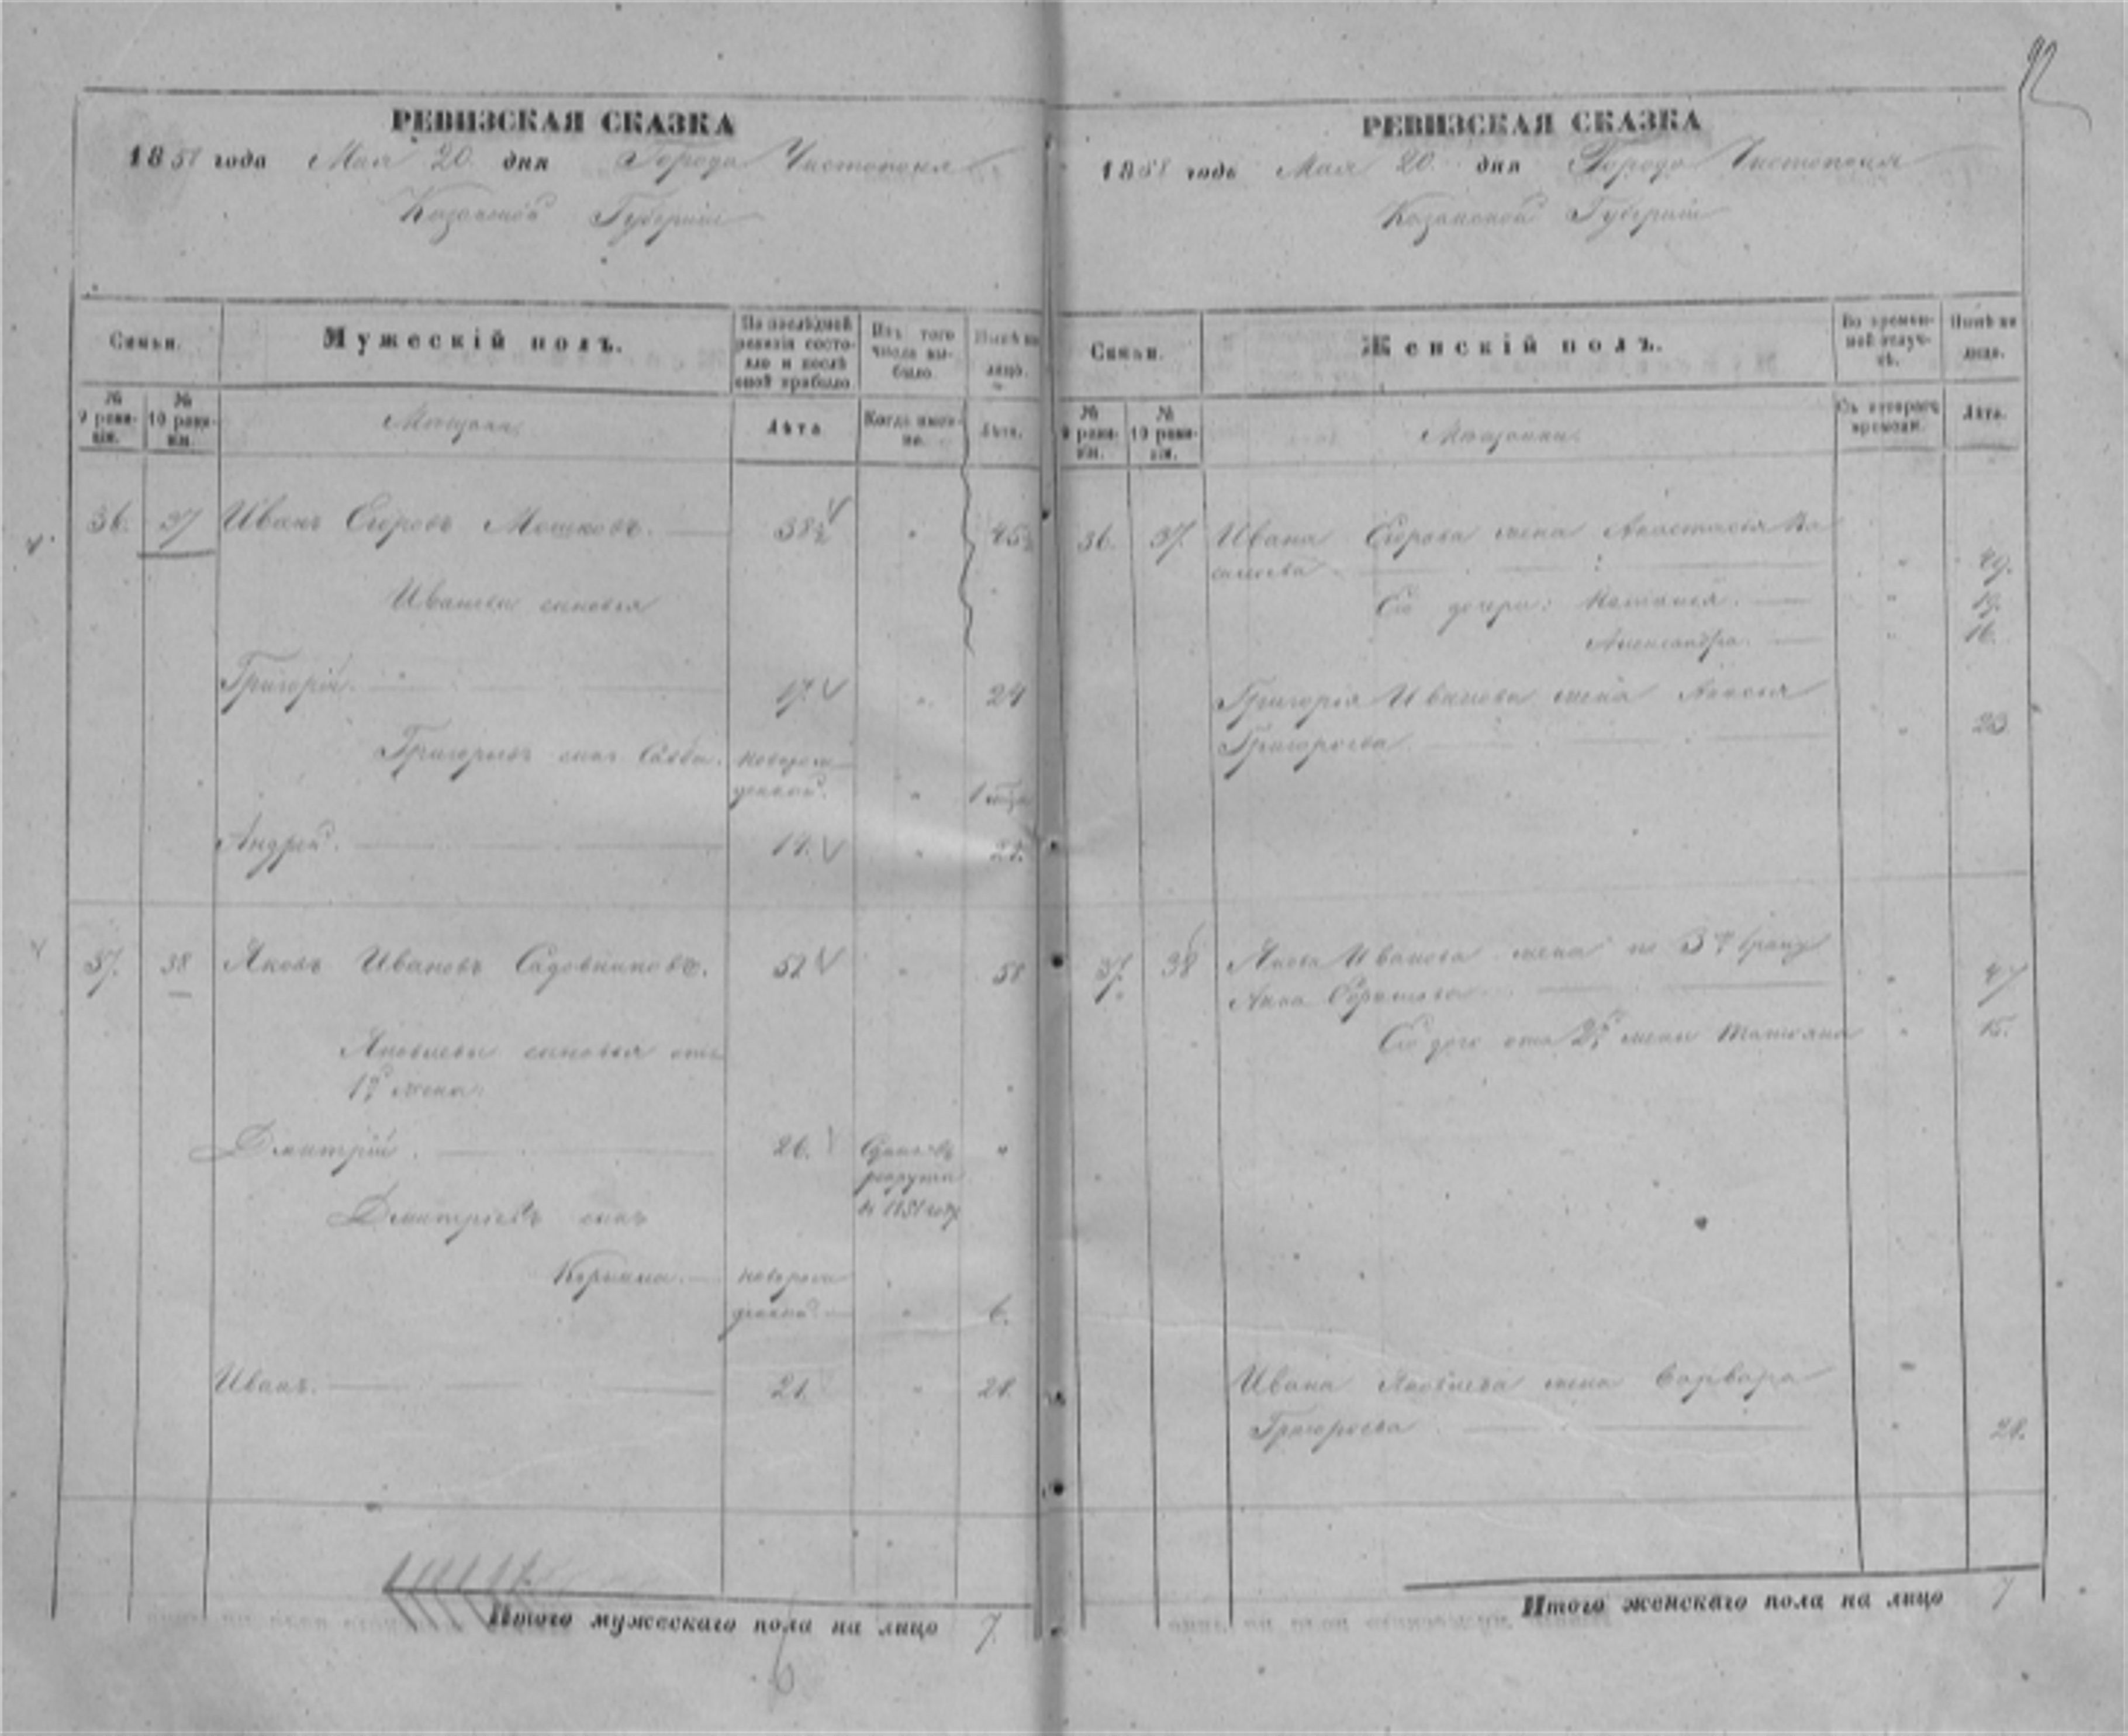 92
РЕВИЗСКАЯ СКАЗКА
1858 года Мая 20 дня Города Чистополя
Казанской Губернии
Семьи.
Мужескій полъ.
По послѣдней ревизіи состояло и послѣ оной прибыло.
Изъ того числа выбыло.
Нынѣ на лицо.
№ 9 ревизіи.
№ 10 ревизіи.
Мещане
Лѣта
Когда именно.
Лѣта.
36. 37 Иванъ Егоровъ Мошковъ. 38½ " 45½
Ивановы сыновья
Григорій. 17. " 24
Григорьевъ сынъ Савва. новорож
денный. " 1
Андрей. 14. " 21.
37. 38 Яковъ Ивановъ Садовниковъ. 52 " 58
Яковлевы сыновья отъ
1й жены:
Дмитрій. 26. Сданъ въ "
рекруты
Дмитріевъ сынъ
новорож
денный. " 6.
Иванъ. 21. " 28.
Итого мужескаго пола на лицо 7.
6
РЕВИЗСКАЯ СКАЗКА
1858 года Мая 20 дня Города Чистополя
Казанской Губерніи
Семьи.
Женскій полъ.
Во временной отлучкѣ.
Нынѣ на лицо.
№ 9 ревизіи.
№ 10 ревизіи.
Мещанки
Съ котораго времени.
Лѣта.
36. 37. Ивана Егорова жена Анастасія Ва
сильева " 49.
Его дочери: Наталья. " 19.
Александра. " 16.
Григорія Иванова жена
Григорьева " 23.
37. 38 Якова Иванова жена по 3му браку
Анна " 47
Его дочь отъ 2й жены Татьяна " 15.
Ивана Яковлева жена Варвара
Григорьева " 28.
Итого женскаго пола на лицо 7